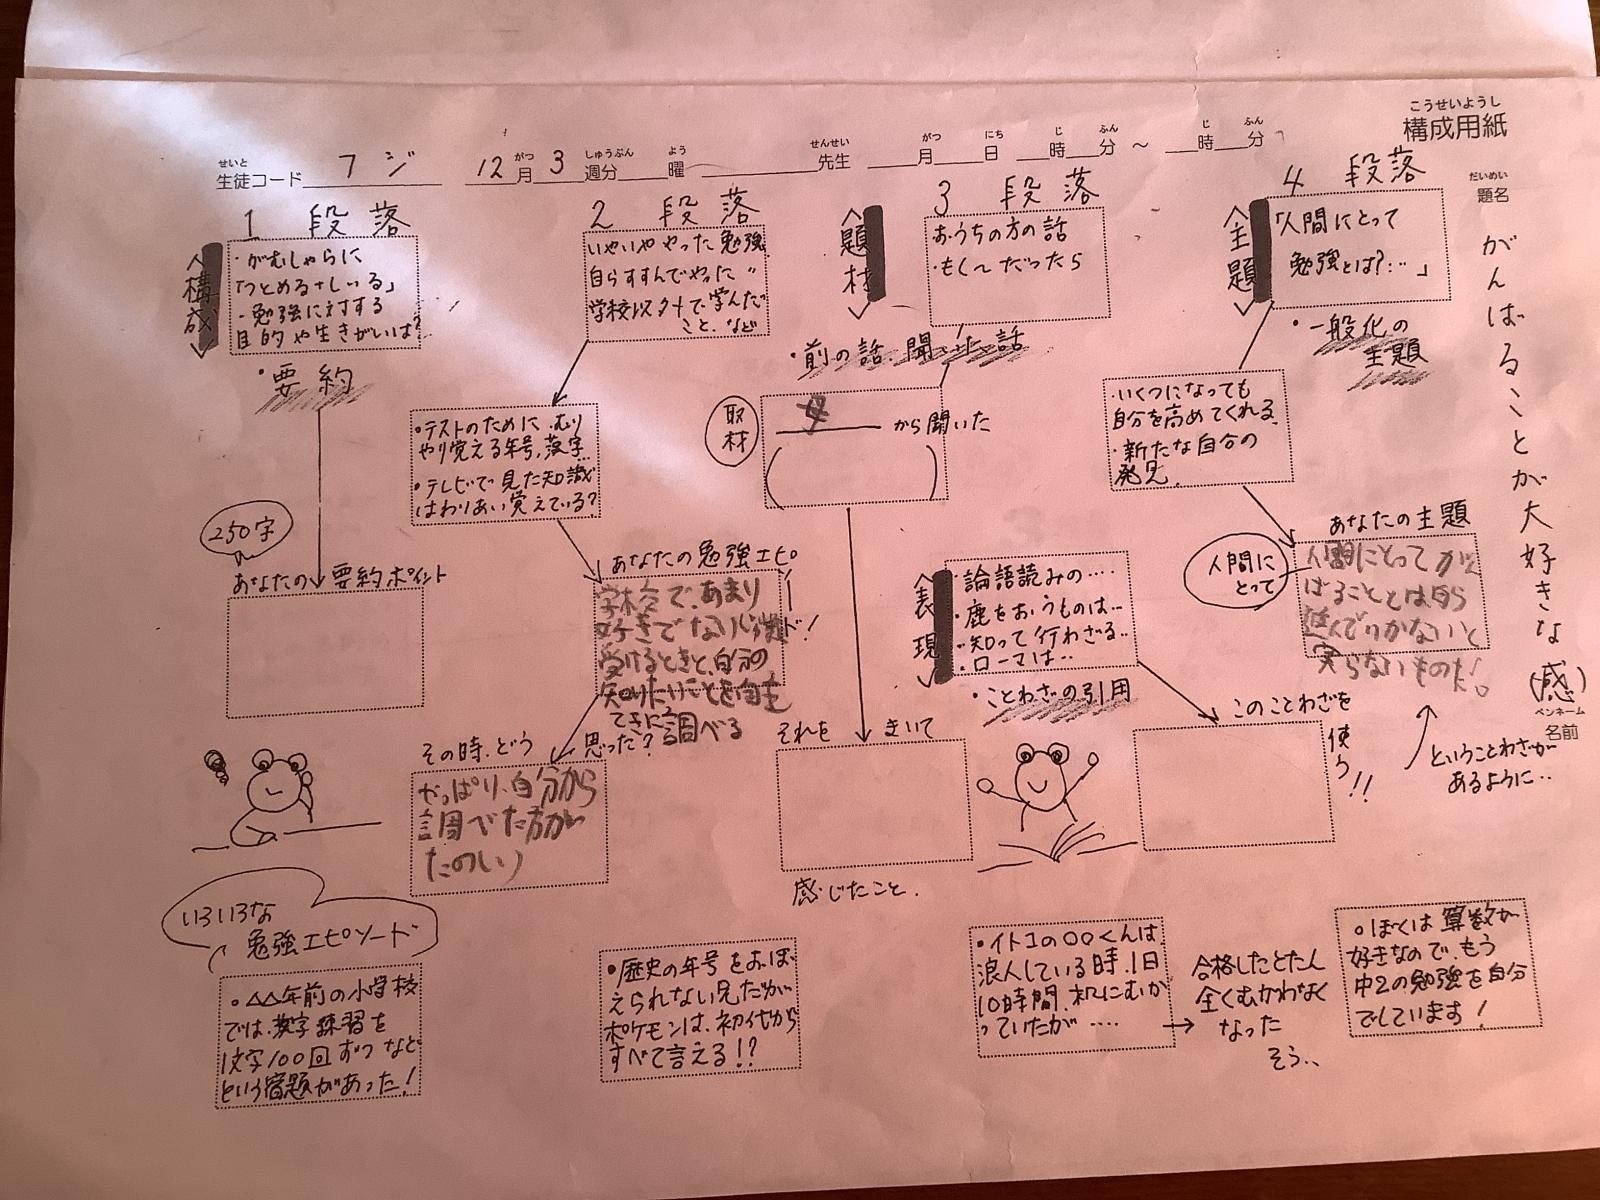 こうせいようし
構成用紙
せいと
生徒コード フジ
がつ しゅうぶん よう
12月3週分 曜
せんせい がつ にち じ ふん じ ふん
先生 月 日 時 分 ～ 時 分
だいめい
題名
がんばることが大好きな(感)
ペンネーム
名前
1 段落
<構成>
・がむしゃらに
「つとめる+しいる」
・勉強に対する
目的や生きがいは?
・要約
250字
あなたの要約ポイント
2 段落
いやいややった勉強
自らすすんでやった〃
学校以外で学んだ
こと、など
・テストのために、むり
やり覚える年号、漢字…
・テレビで見た知識
はわりあい覚えている?
あなたの勉強エピソード!
学校であまり
好きでない
受けるときと、自分の
知りたいことを自主
てきに調べる
その時、どう思った?
やっぱり、自分から
調べた方が
たのしい
3 段落
<題材>
おうちの方の話
・もし〜だったら
・前の話、聞いた話
取材
母 から聞いた
それを きいて
感じたこと.
4 段落
<主題>
「人間にとって
勉強とは?…」
・一般化の
主題
・いくつになっても
自分を高めてくれる
・新たな自分の
発見
あなたの主題
人間にとって
人間にとってがん
ばることとは自ら
進んでいかないと
実らないものだ。
<表現>
・論語読みの‥‥
・鹿をおうものは‥
・知って行わざる‥
・ローマは‥
・ことわざの引用
このことわざを
使う!!
ということわざが
あるように‥
いろいろな
勉強エピソード
○△△年前の小学校
では、漢字練習を
1文字100回ずつなど
という宿題があった!
・歴史の年号をおぼ
えられない兄だが
ポケモンは、初代から
すべて言える!?
・イトコの○○くんは、
浪人している時、1日
10時間、机にむか
っていたが ‥‥
合格したとたん
全くむかわなく
なった
そう‥
○ぼくは算数が
好きなので、もう
中2の勉強を自分
でしています!